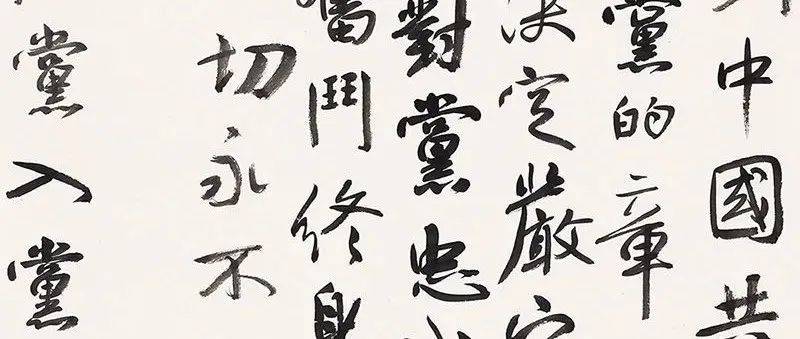 中國共
黨的章
決定嚴守
對黨忠
奮鬥終身
切永不
黨入黨